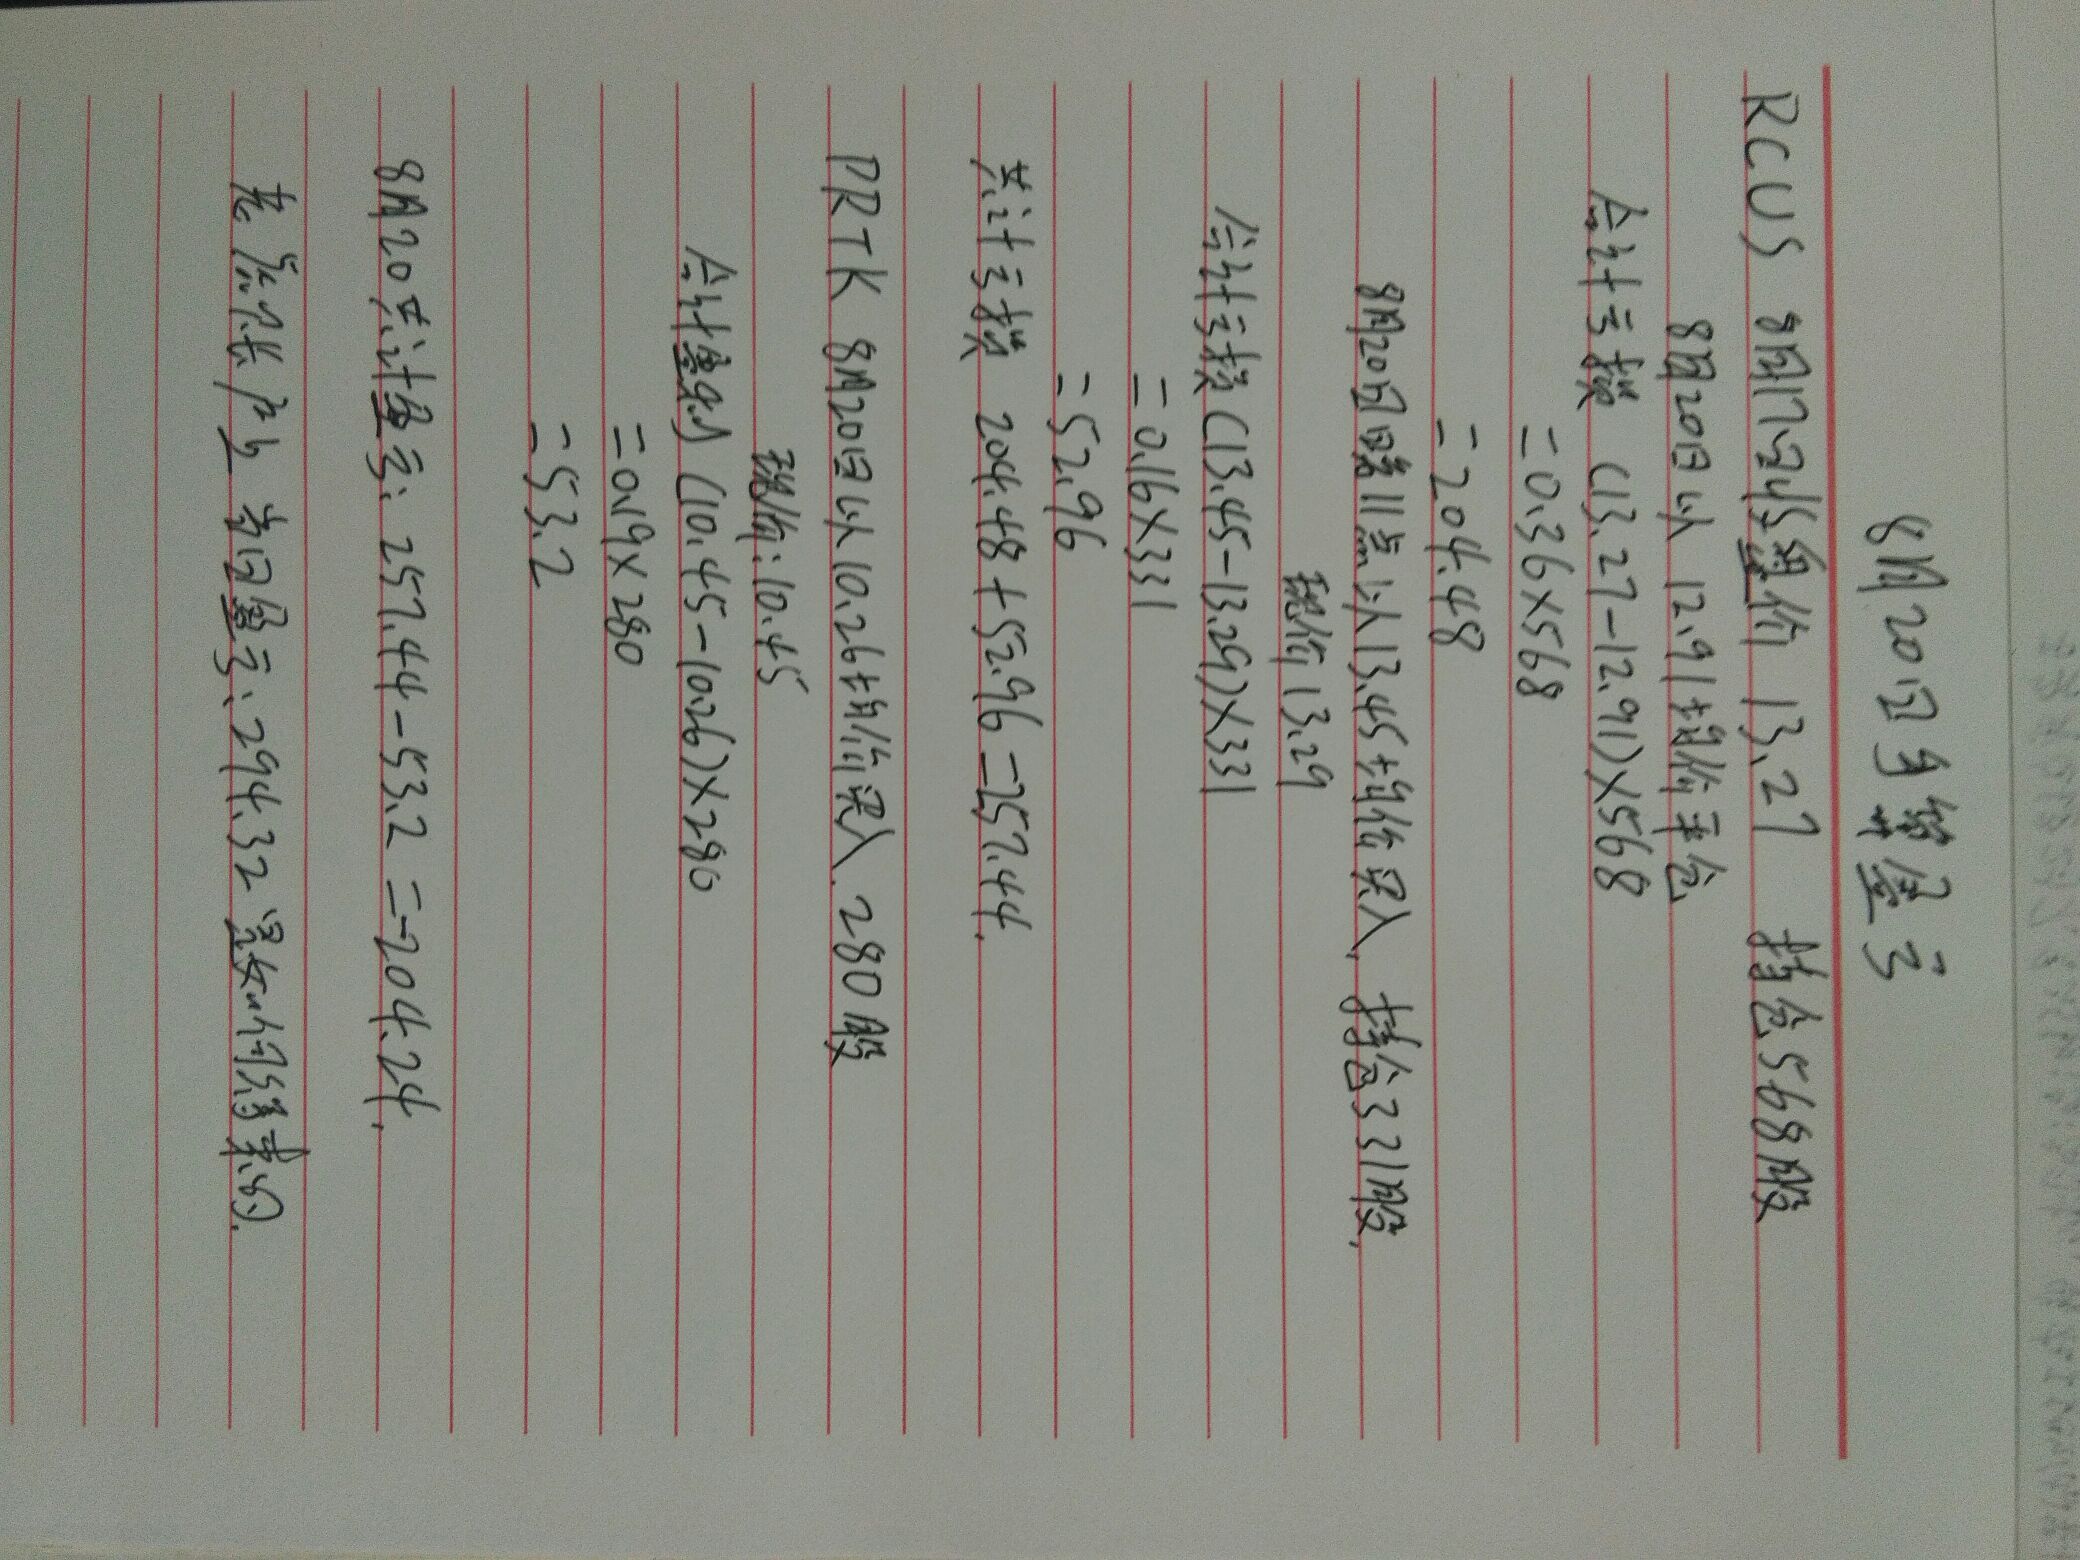 8月20日手算盈亏
RCUS 8月17日收盘价 13.27 持仓568股
8月20日以 12.91均价平仓
合计亏损 (13.27-12.91)×568
=0.36×568
=204.48
8月20日晚11点以13.45均价买入,持仓331股.
现价 13.29
合计亏损 (13.45-13.29)×331
=0.16×331
=52.96
共计亏损 204.48+52.96=257.44.
PRTK 8月20日以10.26均价买入.280股
现价:10.45
合计盈利 (10.45-10.26)×280
=0.19×280
=53.2
8月20共计盈亏:257.44-53.2=-204.24.
老虎账户上 当日盈亏:294.32 是如何得来的.